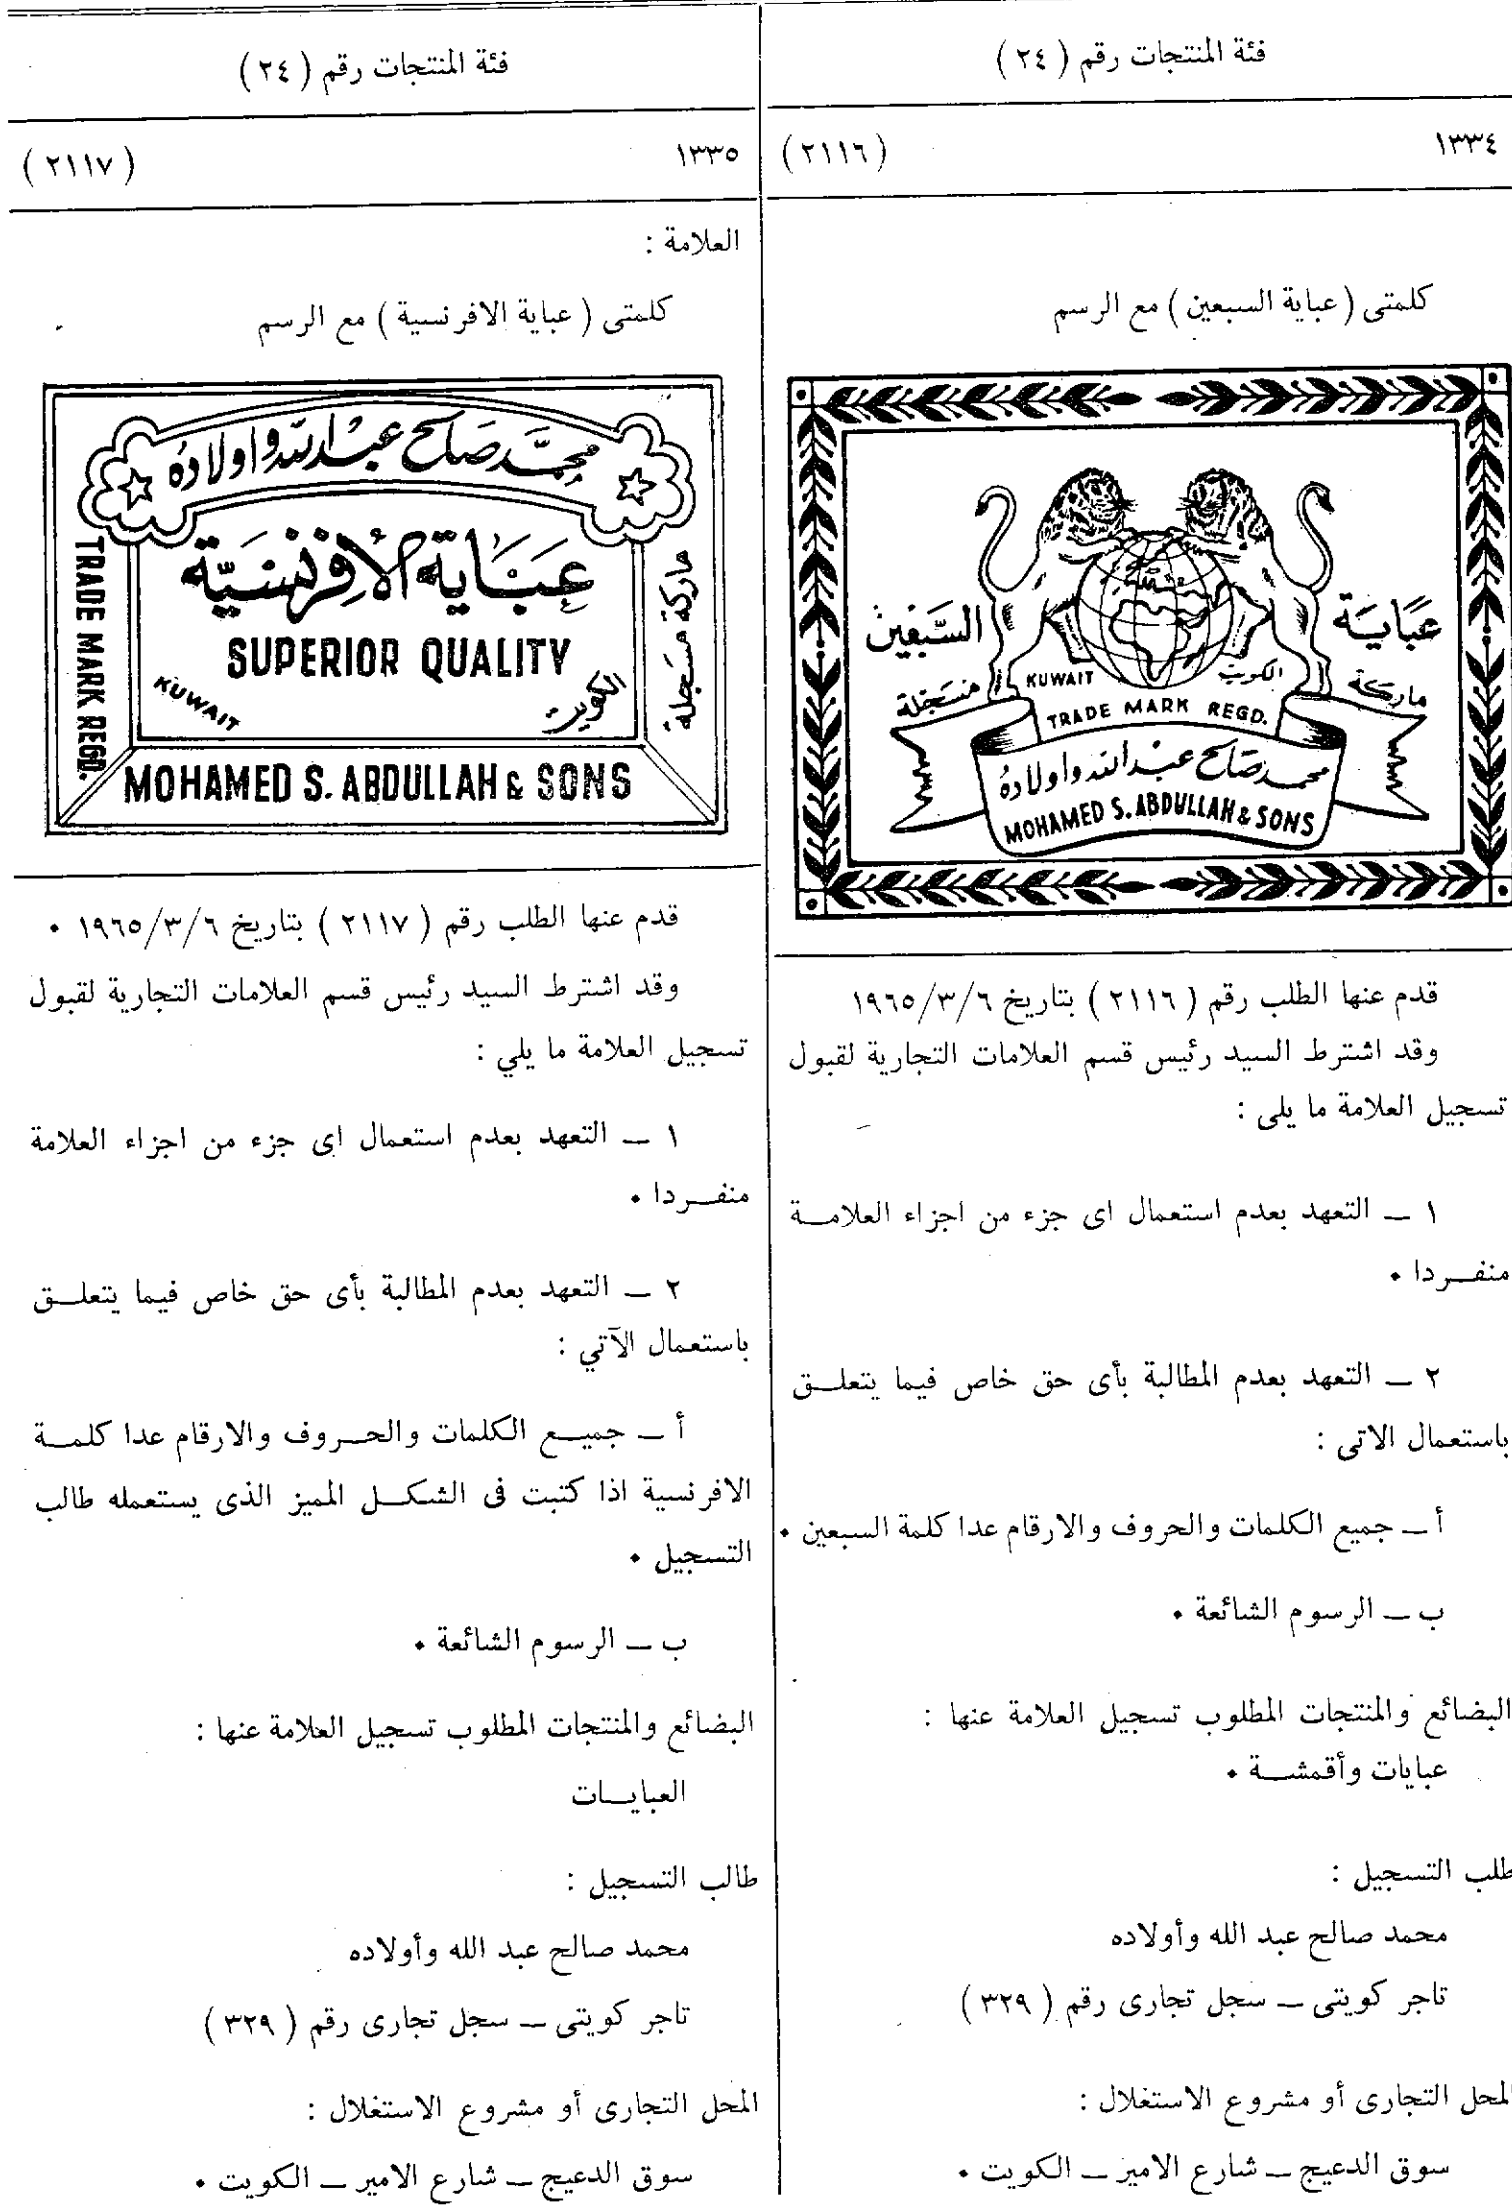 فئة المنتجات رقم ( ٢٤ )
١٣٣٤ ( ٢١١٦ )
كلمتى ( عباية السبعين ) مع الرسم
عباية
السبعين
KUWAIT
الكويت
ماركة
مسجلة
TRADE MARK REGD.
محمد صالح عبد الله واولاده
MOHAMED S. ABDULLAH & SONS
قدم عنها الطلب رقم ( ٢١١٦ ) بتاريخ ١٩٦٥/٣/٦
وقد اشترط السيد رئيس قسم العلامات التجارية لقبول
تسجيل العلامة ما يلى :
١ ــ التعهد بعدم استعمال اى جزء من اجزاء العلامــة
منفــردا ٠
٢ ــ التعهد بعدم المطالبة بأى حق خاص فيما يتعلــق
باستعمال الاتى :
أ ــ جميع الكلمات والحروف والارقام عدا كلمة السبعين ٠
ب ــ الرسوم الشائعة ٠
البضائع والمنتجات المطلوب تسجيل العلامة عنها :
عبايات وأقمشــة ٠
طلب التسجيل :
محمد صالح عبد الله وأولاده
تاجر كويتى ــ سجل تجارى رقم ( ٣٢٩ )
المحل التجارى أو مشروع الاستغلال :
سوق الدعيج ــ شارع الامير ــ الكويت ٠
فئة المنتجات رقم ( ٢٤ )
١٣٣٥ ( ٢١١٧ )
العلامة :
كلمتى ( عباية الافرنسية ) مع الرسم
محمد صالح عبد الله واولاده
عباية الافرنسية
SUPERIOR QUALITY
KUWAIT
الكويت
ماركة مسجلة
TRADE MARK REGD.
MOHAMED S. ABDULLAH & SONS
قدم عنها الطلب رقم ( ٢١١٧ ) بتاريخ ١٩٦٥/٣/٦ ٠
وقد اشترط السيد رئيس قسم العلامات التجارية لقبول
تسجيل العلامة ما يلي :
١ ــ التعهد بعدم استعمال اى جزء من اجزاء العلامة
منفــردا ٠
٢ ــ التعهد بعدم المطالبة بأى حق خاص فيما يتعلــق
باستعمال الآتي :
أ ــ جميــع الكلمات والحــروف والارقام عدا كلمــة
الافرنسية اذا كتبت فى الشكــل المميز الذى يستعمله طالب
التسجيل ٠
ب ــ الرسوم الشائعة ٠
البضائع والمنتجات المطلوب تسجيل العلامة عنها :
العبايــات
طالب التسجيل :
محمد صالح عبد الله وأولاده
تاجر كويتى ــ سجل تجارى رقم ( ٣٢٩ )
المحل التجارى أو مشروع الاستغلال :
سوق الدعيج ــ شارع الامير ــ الكويت ٠